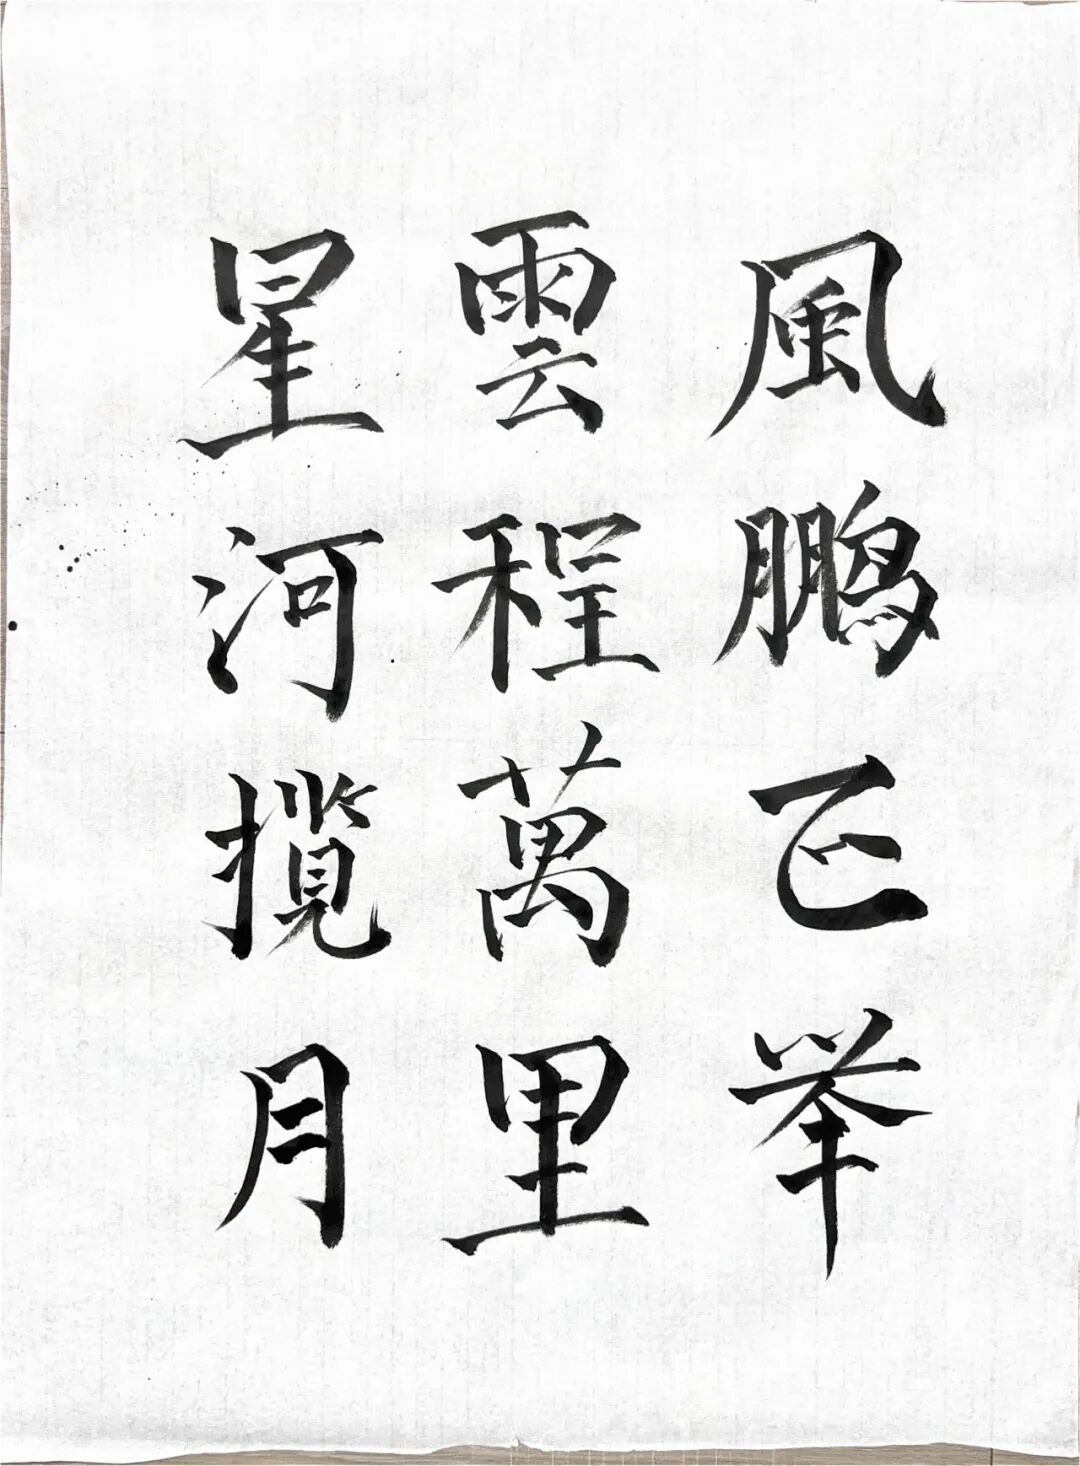 風鵬正举
雲程萬里
星河揽月